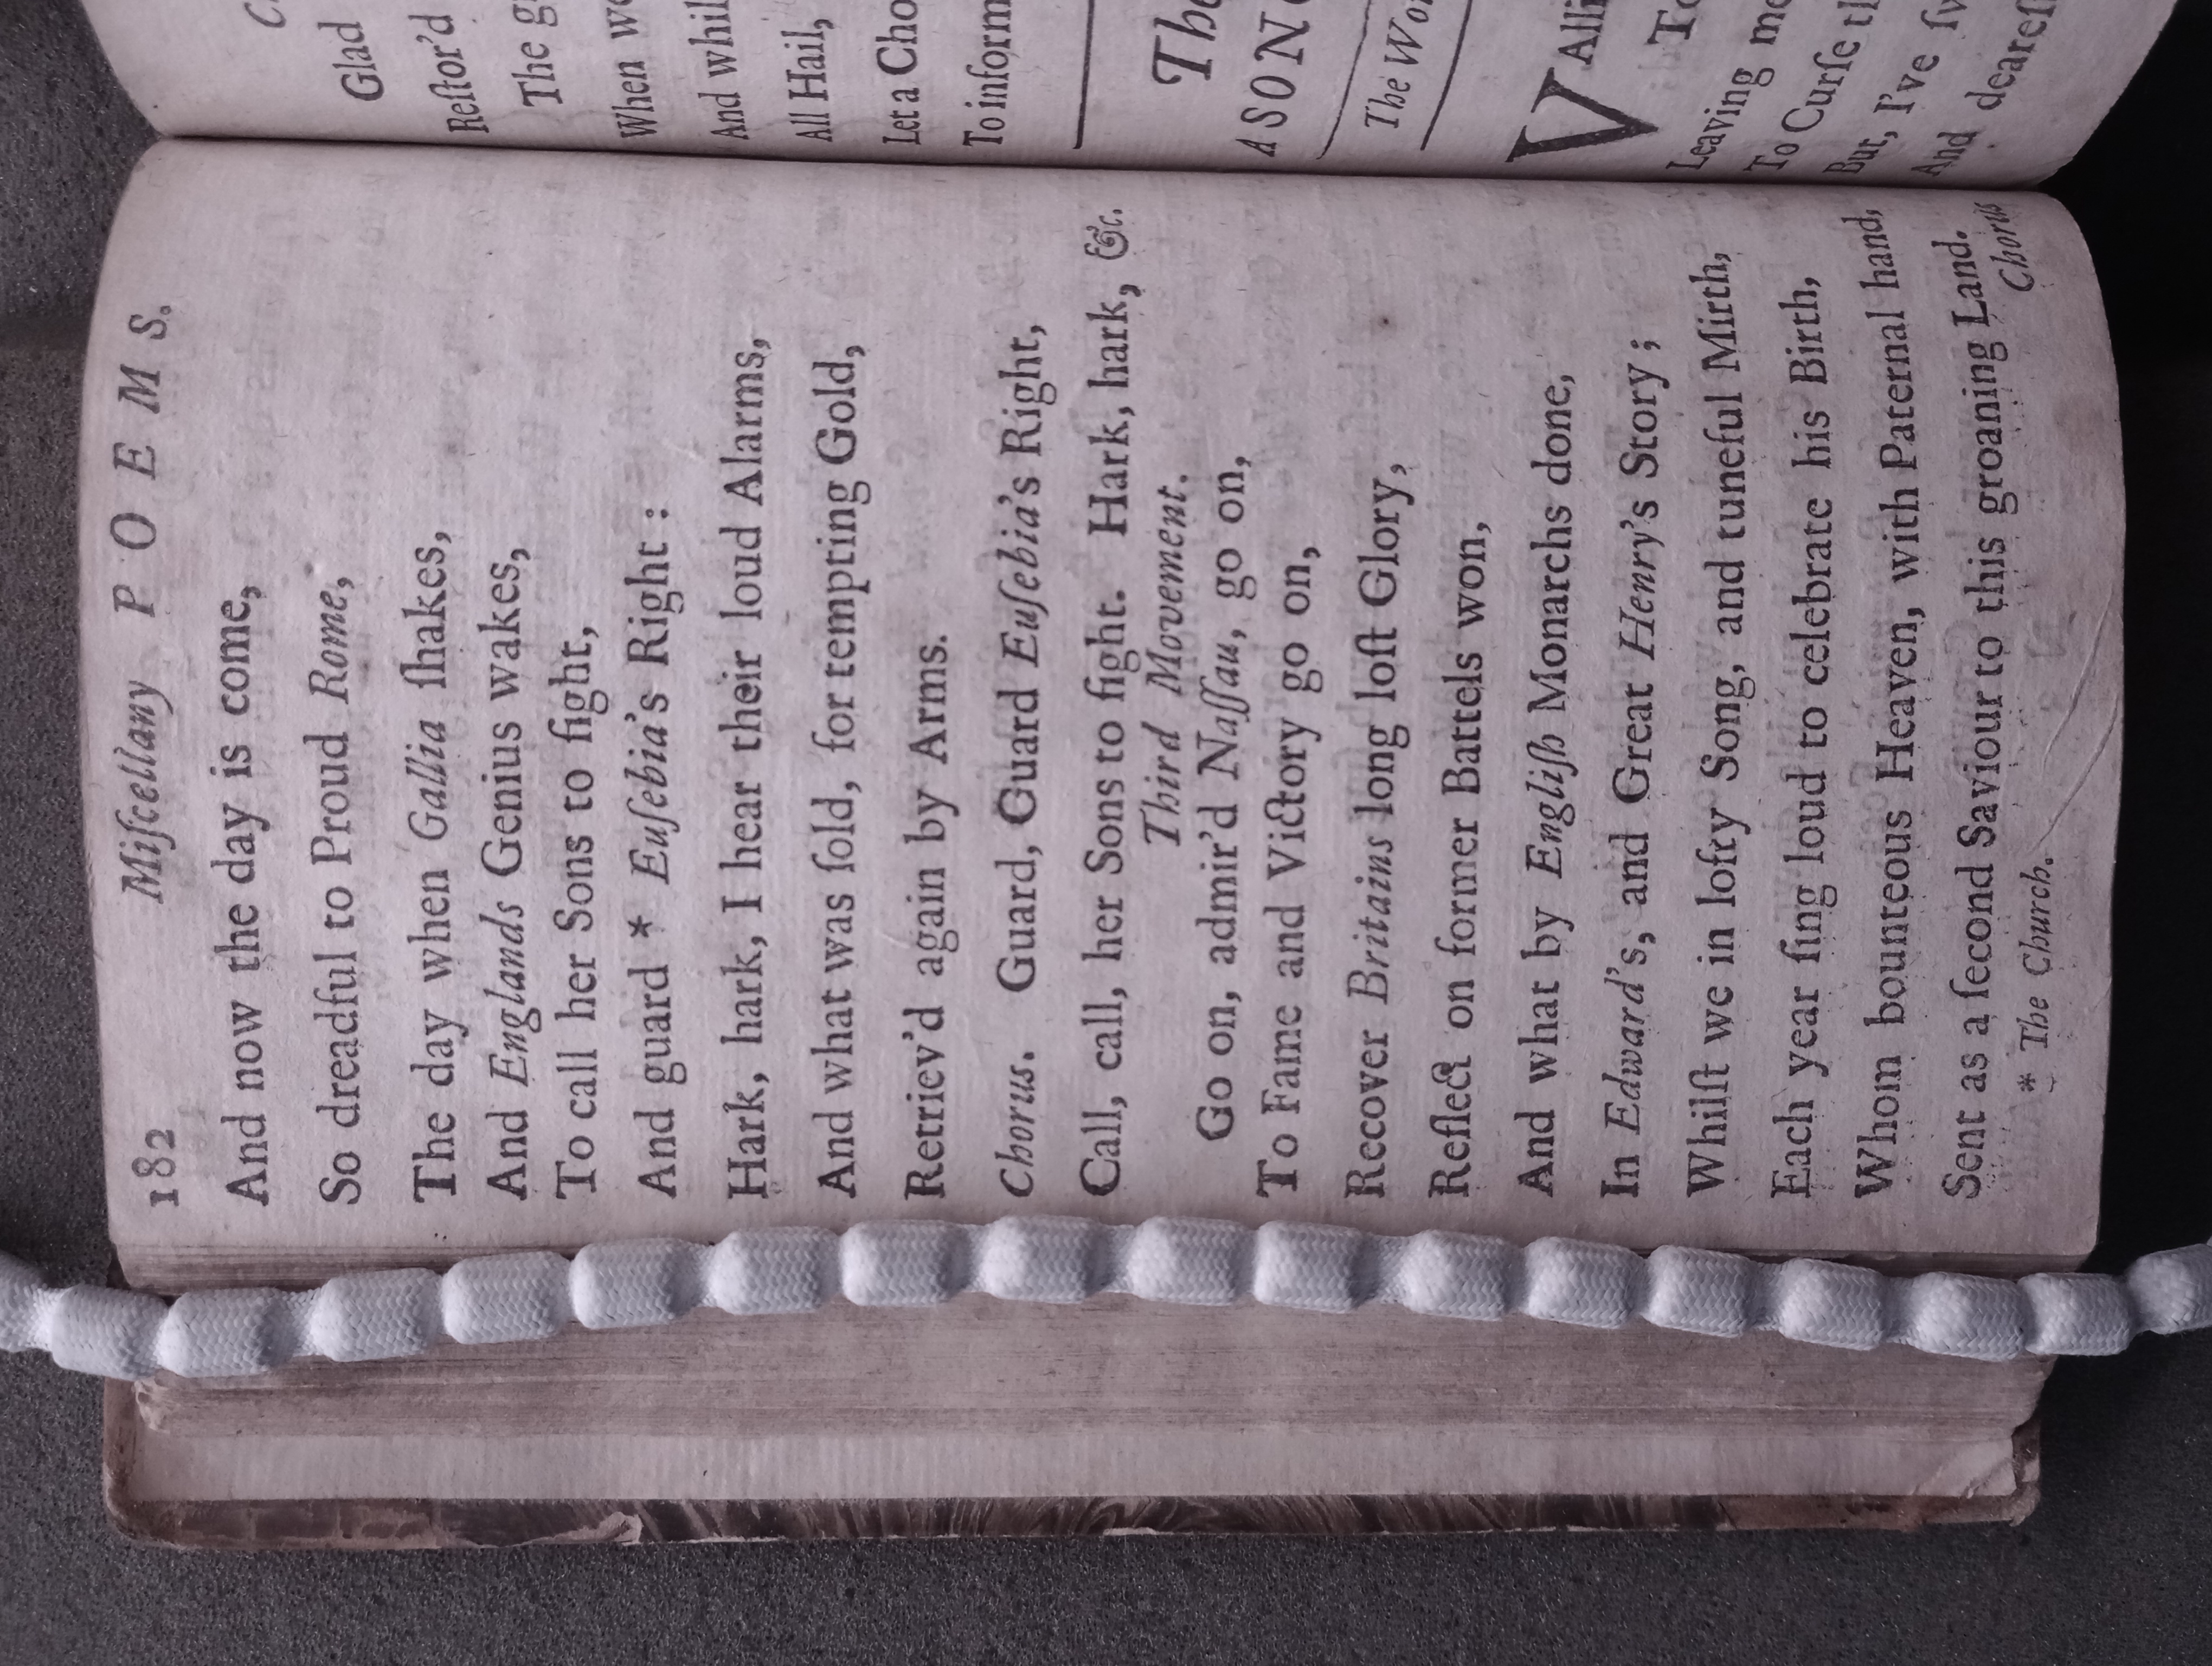 182 Miſcellany POEMS.
And now the day is come,
So dreadful to Proud Rome,
The day when Gallia ſhakes,
And Englands Genius wakes,
To call her Sons to fight,
And guard * Euſebia's Right:
Hark, hark, I hear their loud Alarms,
And what was ſold, for tempting Gold,
Retriev'd again by Arms.
Chorus. Guard, Guard Euſebia's Right,
Call, call, her Sons to fight. Hark, hark, &c.
Third Movement.
Go on, admir'd Naſſau, go on,
To Fame and Victory go on,
Recover Britains long loſt Glory,
Reflect on former Battels won,
And what by Engliſh Monarchs done,
In Edward's, and Great Henry's Story;
Whilſt we in lofty Song, and tuneful Mirth,
Each year ſing loud to celebrate his Birth,
Whom bounteous Heaven, with Paternal hand,
Sent as a ſecond Saviour to this groaning Land.
* The Church. Chorus
Glad
Reſtor'd
The
When
And
All Hail,
Let a
To inform
The
A SONG
The
V
Leaving
To Curſe
But, I've
And deareſt